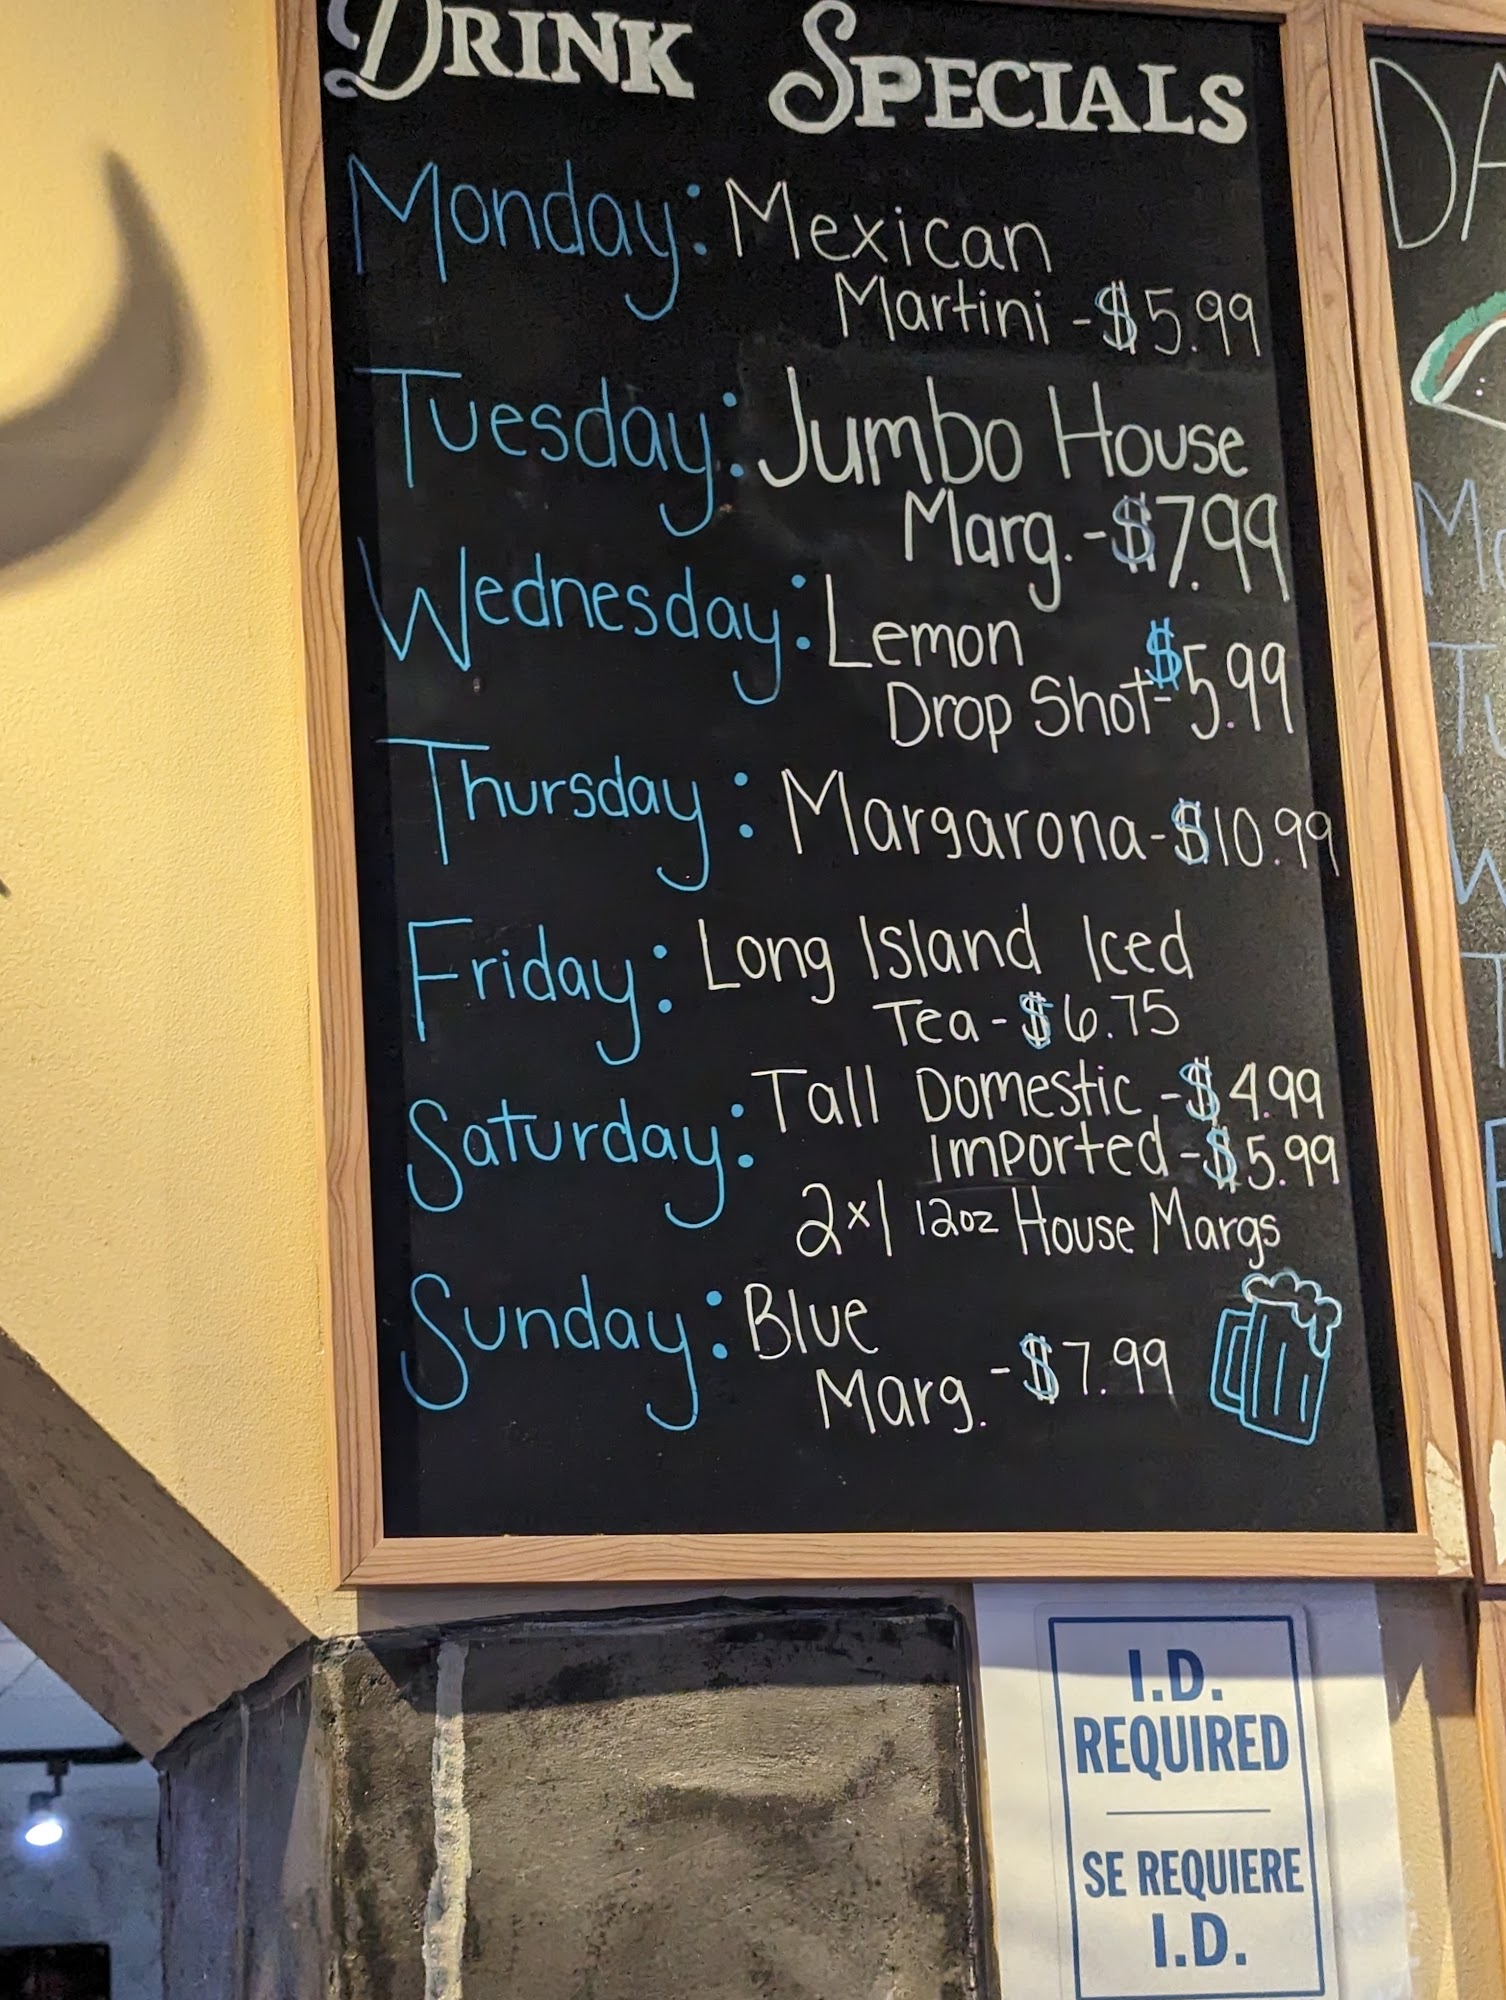 DRINK SPECIALS
Monday: Mexican
Martini - $5.99
Tuesday: Jumbo House
Marg. - $7.99
Wednesday: Lemon
Drop Shot - $5.99
Thursday: Margarona - $10.99
Friday: Long Island Iced
Tea - $6.75
Saturday: Tall Domestic - $4.99
Imported - $5.99
2x1 12oz House Margs
Sunday: Blue
Marg. - $7.99
I.D.
REQUIRED
SE REQUIERE
I.D.